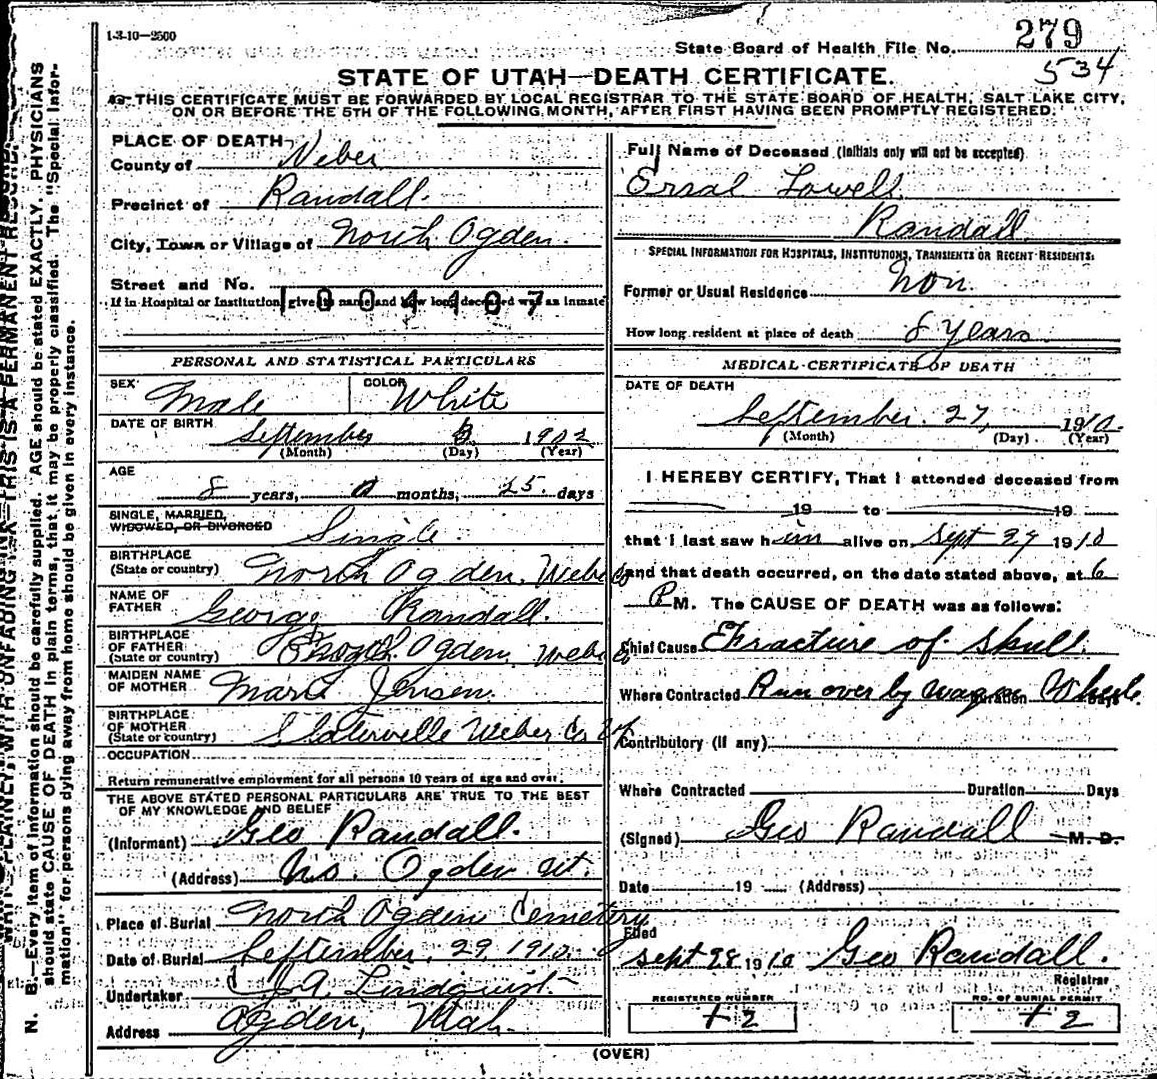 1-3-10—2500
State Board of Health File No. 279
534
STATE OF UTAH—DEATH CERTIFICATE.
THIS CERTIFICATE MUST BE FORWARDED BY LOCAL REGISTRAR TO THE STATE BOARD OF HEALTH, SALT LAKE CITY,
ON OR BEFORE THE 5TH OF THE FOLLOWING MONTH, AFTER FIRST HAVING BEEN PROMPTLY REGISTERED.
PLACE OF DEATH
County of Weber
Precinct of Randall.
City, Town or Village of North Ogden.
Street and No.
If in Hospital or Institution, give its name and how long deceased was an inmate
1004107
PERSONAL AND STATISTICAL PARTICULARS
SEX Male COLOR White
DATE OF BIRTH September 1902
(Month) (Day) (Year)
AGE
8 years, 0 months, 25 days
SINGLE, MARRIED,
WIDOWED, OR DIVORCED Single.
BIRTHPLACE
(State or country) North Ogden, Weber Co
NAME OF
FATHER George Randall.
BIRTHPLACE
OF FATHER
(State or country) North Ogden, Weber Co
MAIDEN NAME
OF MOTHER Marie Jensen.
BIRTHPLACE
OF MOTHER
(State or country) Slaterville Weber Co. Ut
OCCUPATION
Return remunerative employment for all persons 10 years of age and over.
THE ABOVE STATED PERSONAL PARTICULARS ARE TRUE TO THE BEST
OF MY KNOWLEDGE AND BELIEF
(Informant) Geo Randall.
(Address) No. Ogden Ut.
Place of Burial North Ogden Cemetery
Date of Burial September. 29 1910
Undertaker J A Lindquist
Address Ogden, Utah.
Full Name of Deceased (Initials only will not be accepted)
Erral Lowell
Randall
SPECIAL INFORMATION FOR HOSPITALS, INSTITUTIONS, TRANSIENTS OR RECENT RESIDENTS:
Former or Usual Residence Non.
How long resident at place of death 8 Years
MEDICAL CERTIFICATE OF DEATH
DATE OF DEATH
September. 27, 1910.
(Month) (Day) (Year)
I HEREBY CERTIFY, That I attended deceased from
19 to 19
that I last saw him alive on Sept 27 1910
and that death occurred, on the date stated above, at 6
P M. The CAUSE OF DEATH was as follows:
Chief Cause Fracture of Skull.
Where Contracted Run over by wagon Wheele. Duration Days
Contributory (if any)
Where Contracted Duration Days
(Signed) Geo Randall M. D.
Date 19 (Address)
Filed
Sept 28 1910 Geo Randall.
Registrar
REGISTERED NUMBER
12
NO. OF BURIAL PERMIT
12
(OVER)
WRITE PLAINLY, WITH UNFADING INK—THIS IS A PERMANENT RECORD.
N. B.—Every item of information should be carefully supplied. AGE should be stated EXACTLY. PHYSICIANS
should state CAUSE OF DEATH in plain terms, that it may be properly classified. The "Special Infor-
mation" for persons dying away from home should be given in every instance.